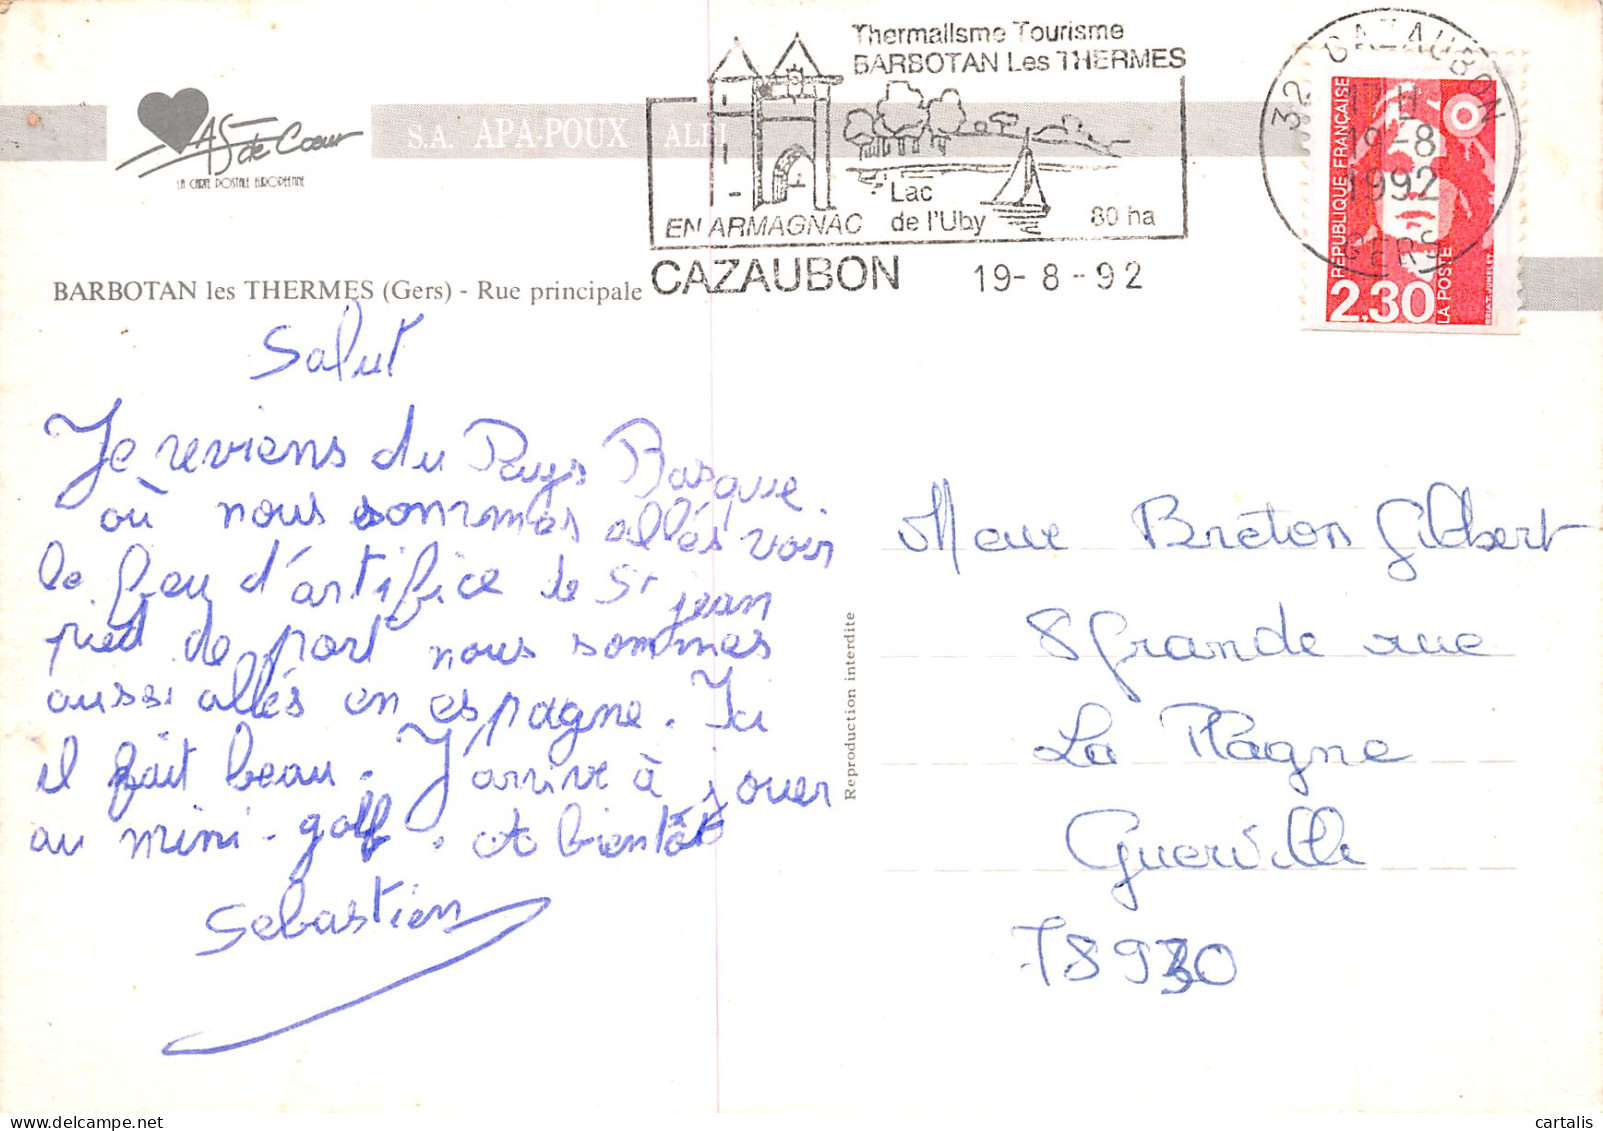 Thermalisme Tourisme
BARBOTAN Les THERMES
EN ARMAGNAC
Lac
de l'Uby
80 ha
CAZAUBON 19-8-92
32 CAZAUBON
17H
19-8
1992
GERS
RÉPUBLIQUE FRANÇAISE
2,30
LA POSTE
AS de Cœur
LA CARTE POSTALE EUROPEENNE
S.A. APA-POUX ALBI
BARBOTAN les THERMES (Gers) - Rue principale
Salut
Je reviens du Pays Basque
où nous sommes allés voir
le feu d'artifice de St jean
pied de port nous sommes
aussi allés en espagne. Ici
il fait beau. J'arrive à jouer
au mini-golf. A bientôt
Sebastien
Reproduction interdite
Breton Gilbert
8 grande rue
La Plagne
Guerville
78930
cartalis